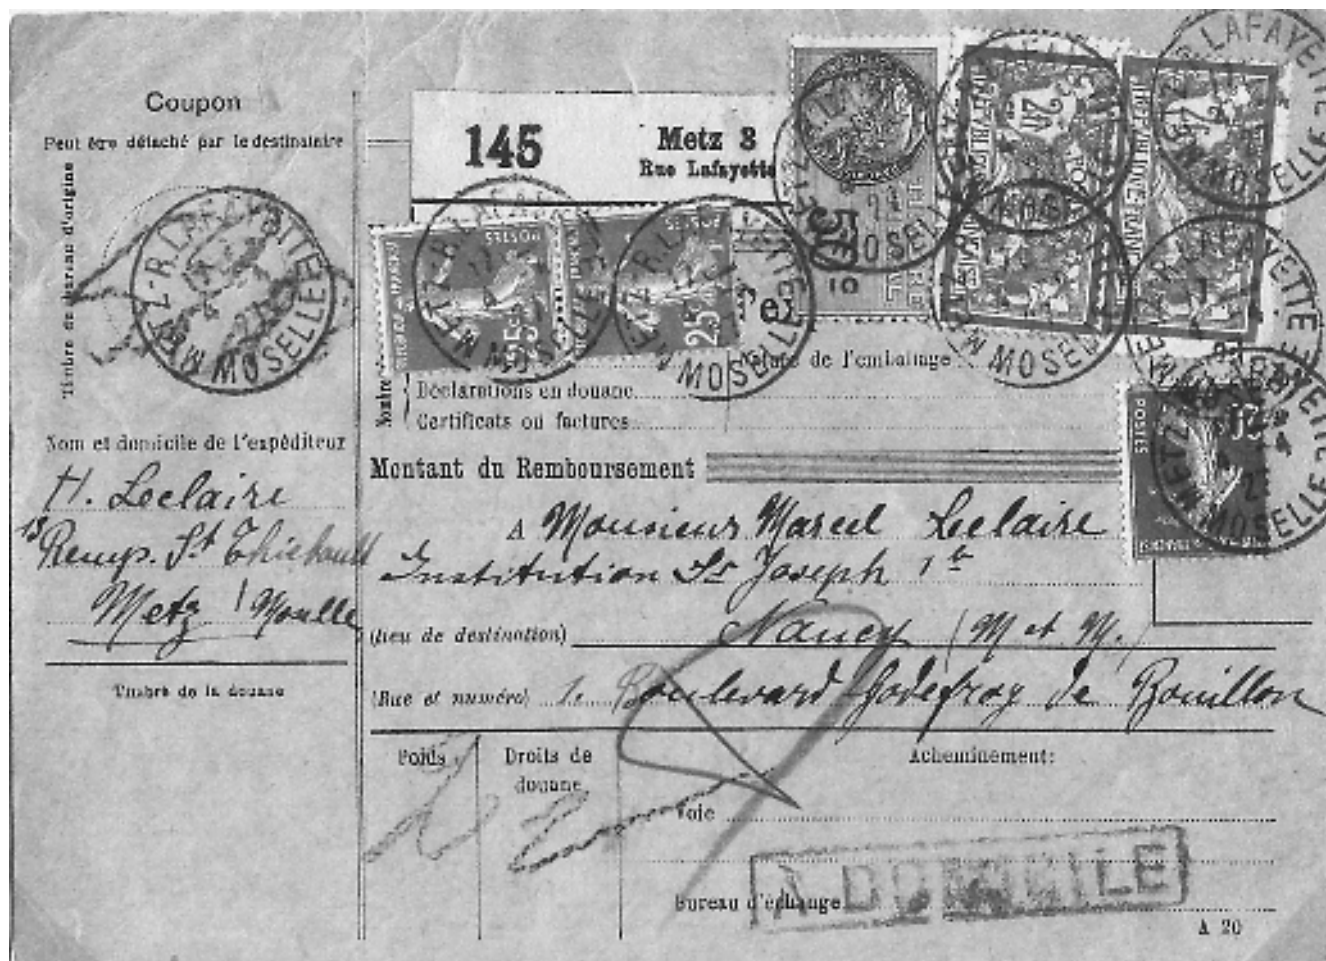 Coupon
Peut être détaché par le destinataire
Timbre du bureau d'origine
METZ - R. LAFAYETTE
MOSELLE
Nom et domicile de l'expéditeur
H. Leclaire
13 Remp. St Thiebault
Metz (Moselle
Timbre de la douane
145
Metz 3
Rue Lafayette
POSTES
25
Nature de l'emballage
Nombre
Déclarations en douane
Certificats ou factures
Montant du Remboursement
A Monsieur Marcel Leclaire
Institution St Joseph
(lieu de destination) Nancy (M et M.)
(Rue et numéro) 1. Boulevard Godefroy de Bouillon
Poids
Droits de
douane
Acheminement:
Voie
Bureau d'échange
A DOMICILE
A 20